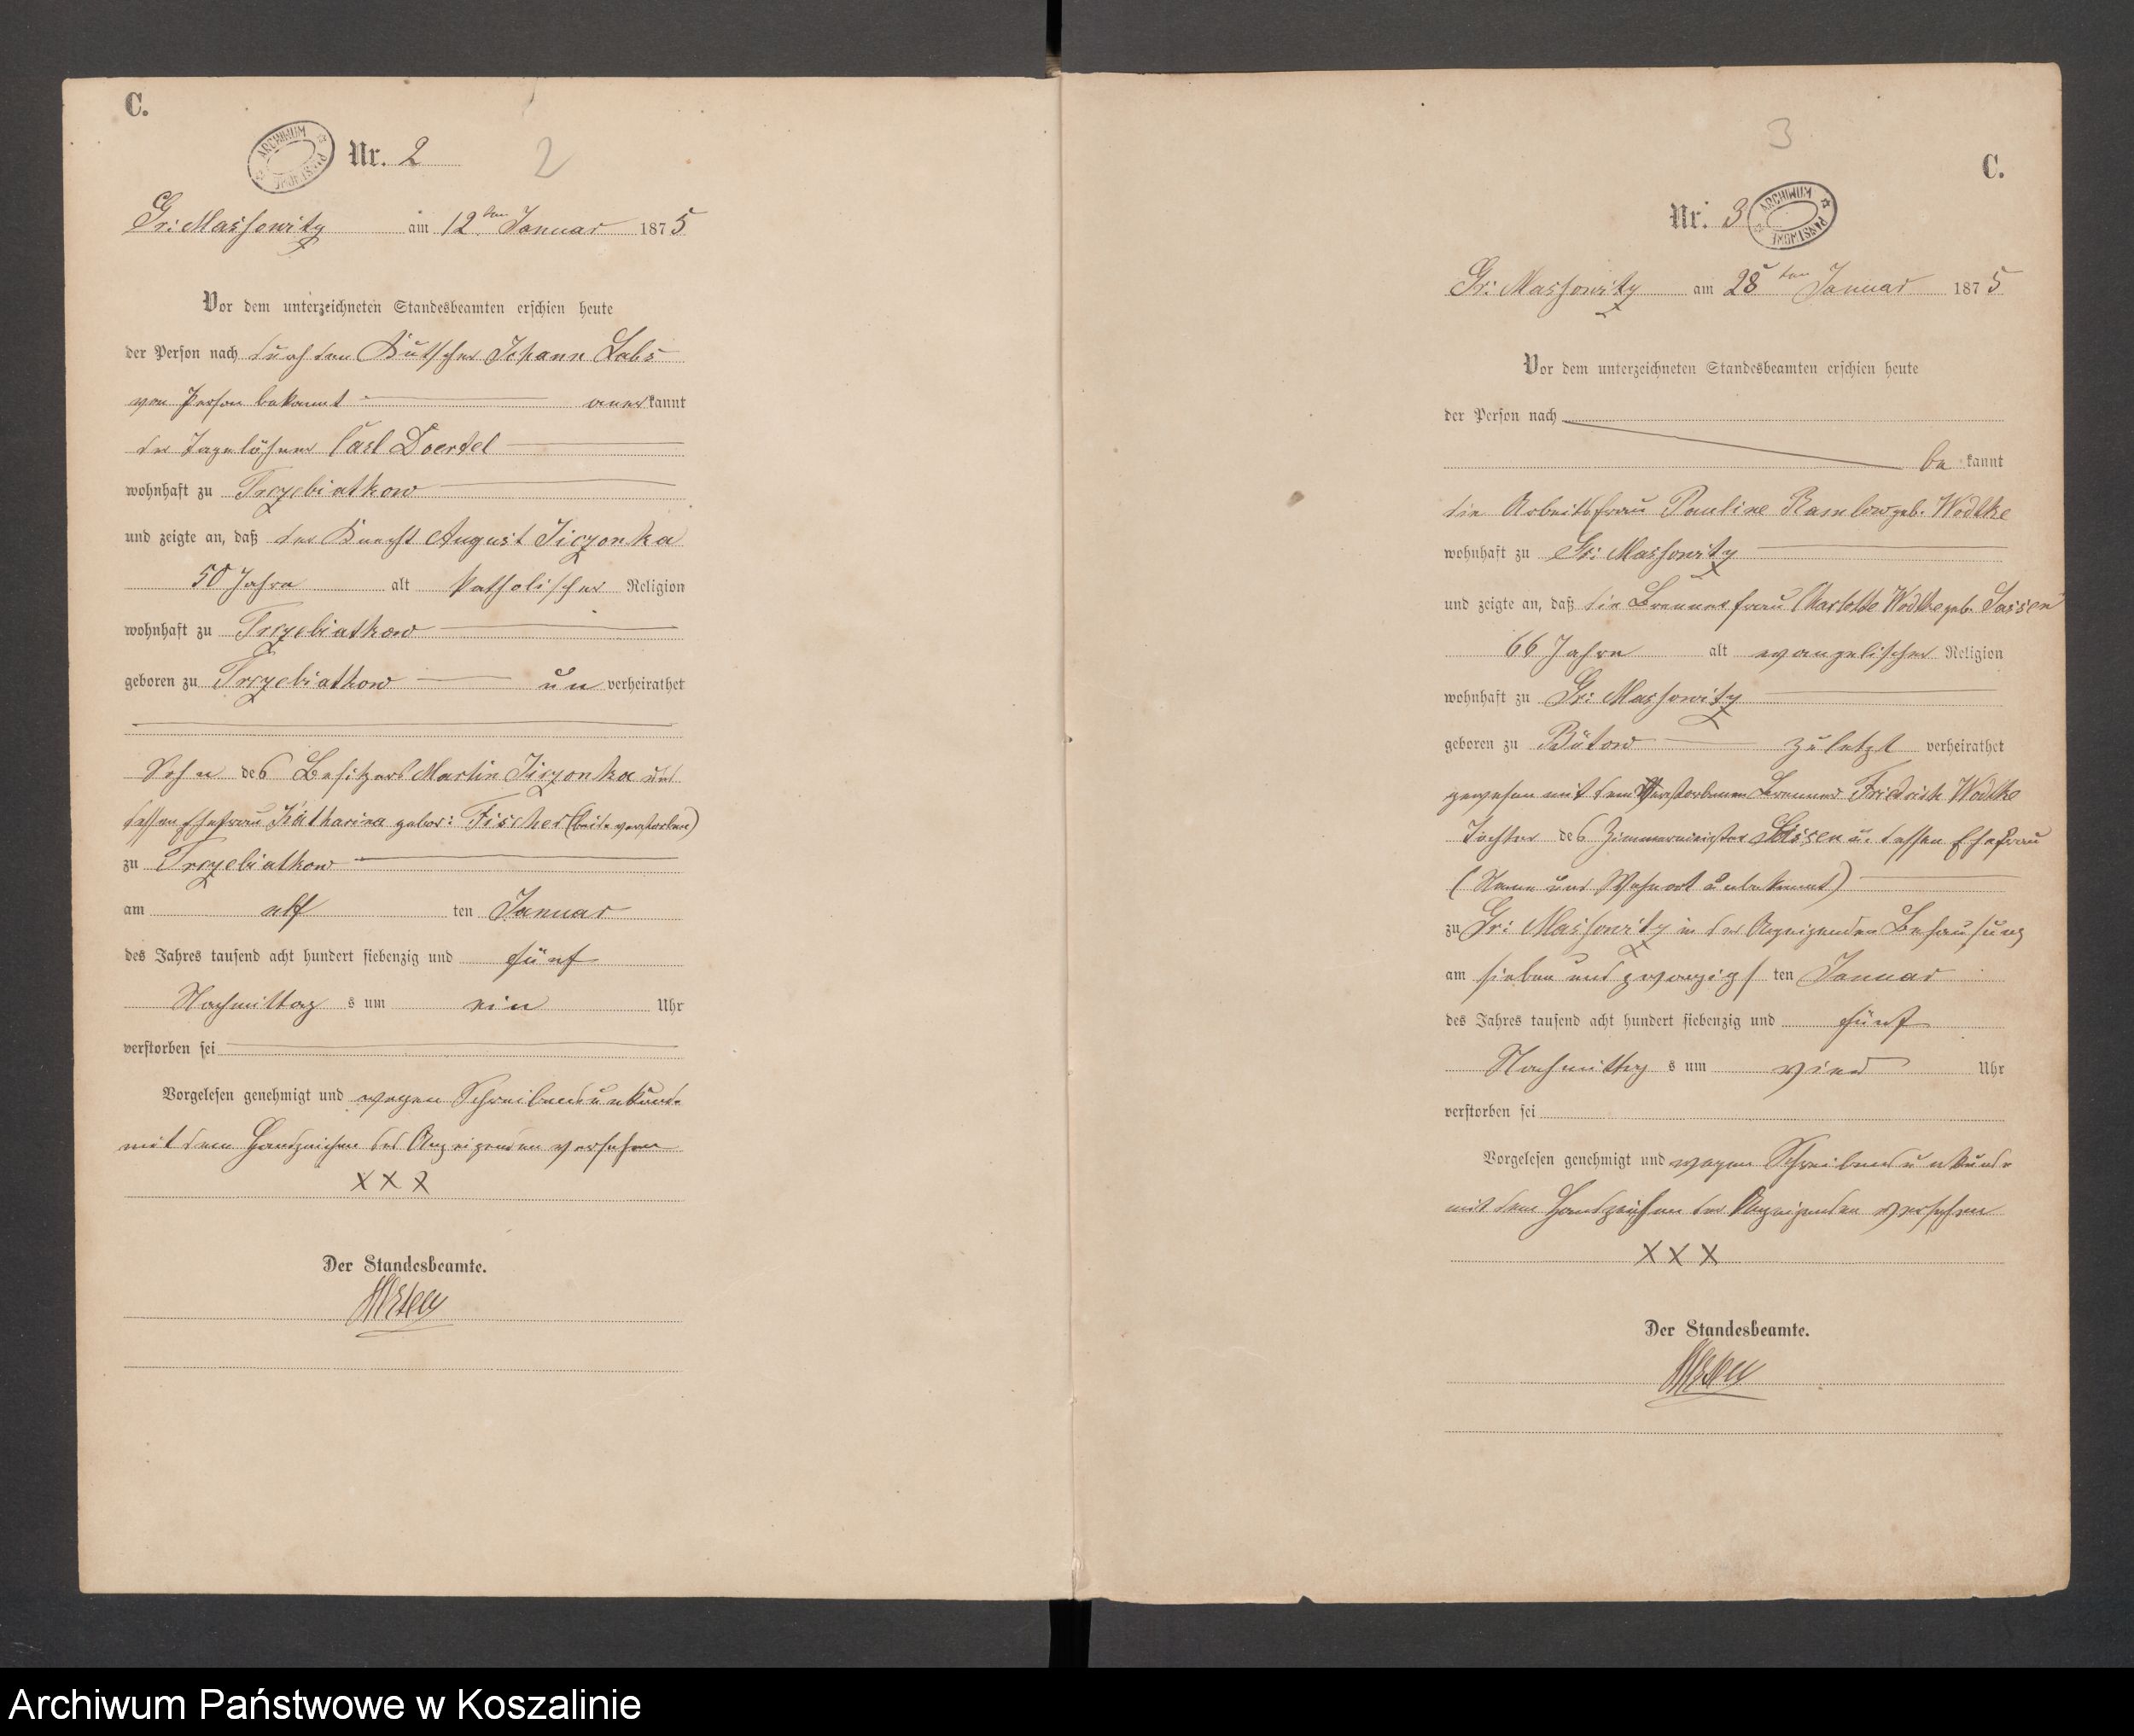 C.
ARCHIWUM PAŃSTWOWE
Nr. 2
2
Gr: Massowitz am 12ten Januar 1875
Vor dem unterzeichneten Standesbeamten erschien heute
der Person nach durch den Kutscher Johann Labs
von Person bekannt anerkannt
der Tagelöhner Carl Doertel
wohnhaft zu Trzebiatkow
und zeigte an, daß der Knecht August Jiczonka
50 Jahre alt katholischer Religion
wohnhaft zu Trzebiatkow
geboren zu Trzebiatkow unverheirathet
Sohn des Besitzers Martin Jiczonka und
dessen Ehefrau Katharina gebor: Fischer (beide verstorben)
zu Trzebiatkow
am elf ten Januar
des Jahres tausend acht hundert siebenzig und fünf
Nachmittags um ein Uhr
verstorben sei
Vorgelesen genehmigt und wegen Schreibensunkunde
mit dem Handzeichen des Anzeigenden versehen
X X X
Der Standesbeamte.
3
C.
Nr. 3
ARCHIWUM PAŃSTWOWE
Gr: Massowitz am 28ten Januar 1875
Vor dem unterzeichneten Standesbeamten erschien heute
der Person nach
bekannt
die Arbeitsfrau Pauline Ramlow geb. Wodtke
wohnhaft zu Gr: Massowitz
und zeigte an, daß die Brennerfrau Charlotte Wodtke geb. Sassen
66 Jahre alt evangelischer Religion
wohnhaft zu Gr: Massowitz
geboren zu Bütow zuletzt verheirathet
gewesen mit dem verstorbenen Brenner Friedrich Wodtke
Tochter des Zimmermeister Sassen u. dessen Ehefrau
(Name und Wohnort unbekannt)
zu Gr: Massowitz in der Anzeigenden Behausung
am sieben und zwanzigsten Januar
des Jahres tausend acht hundert siebenzig und fünf
Nachmittags um vier Uhr
verstorben sei
Vorgelesen genehmigt und wegen Schreibensunkunde
mit dem Handzeichen der Anzeigenden versehen
X X X
Der Standesbeamte.
Archiwum Państwowe w Koszalinie